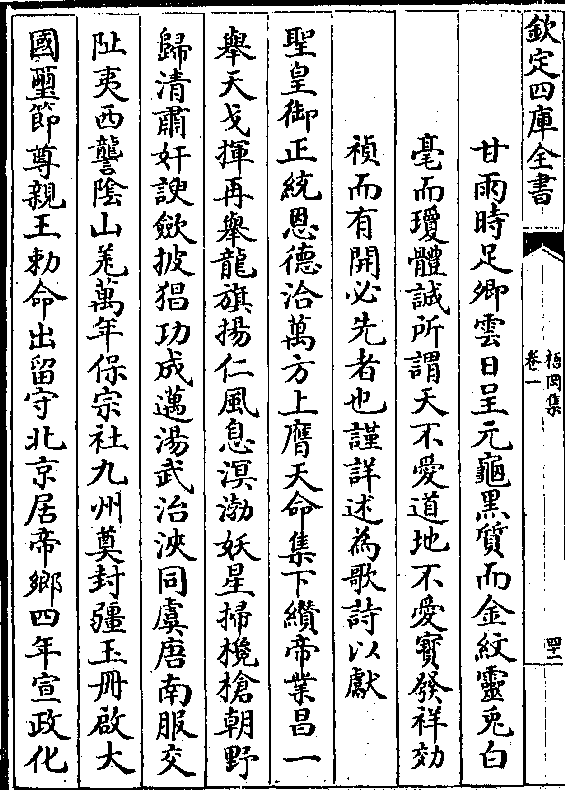 欽定四庫全書
梧岡集
卷一
四十一
甘雨時足卿雲日呈元龜黑質而金紋靈兎白
毫而瓊體誠所謂天不愛道地不愛寳發祥効
禎而有開必先者也謹詳述為歌詩以獻
聖皇御正統恩德洽萬方上膺天命集下纘帝業昌一
舉天戈揮再舉龍旗揚仁風息溟渤妖星掃欃槍朝野
歸清肅奸諛歛披猖功成邁湯武治浹同虞唐南服交
阯夷西讋陰山羌萬年保宗社九州奠封疆玉冊啟大
國璽節尊親王勅命出留守北京居帝鄉四年宣政化